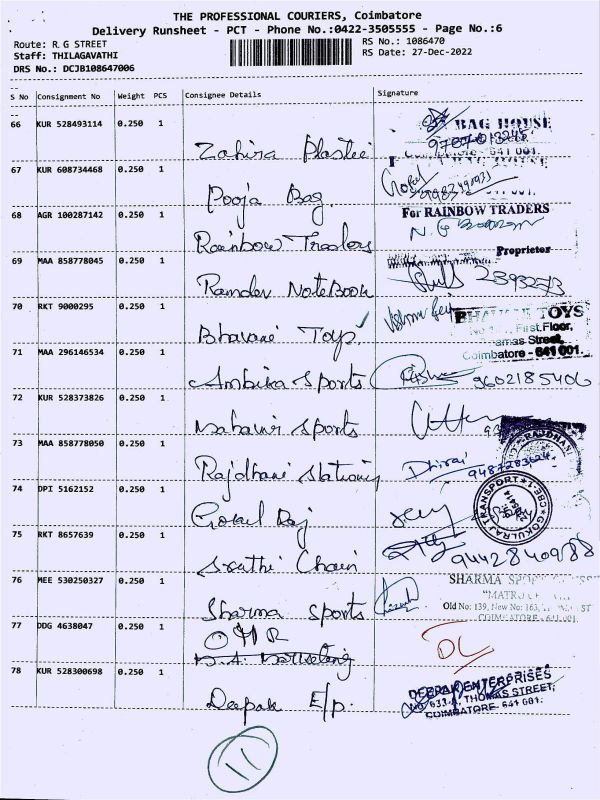 THE PROFESSIONAL COURIERS, Coimbatore
Delivery Runsheet - PCT - Phone No.:0422-3505555 - Page No.:6
Route: R G STREET
RS No.: 1086470
Staff: THILAGAVATHI
RS Date: 27-Dec-2022
DRS No.: DCJB108647006
S No Consignment No Weight PCS Consignee Details Signature
66 KUR 528493114 0.250 1 Zahira Plastic
BAG HOUSE
641 001.
67 KUR 608734468 0.250 1 Pooja Bag
68 AGR 100287142 0.250 1 Rainbow Traders
For RAINBOW TRADERS
Proprietor
69 MAA 858778045 0.250 1 Ramdev NoteBook
2393273
70 RKT 9000295 0.250 1 Bhavani Toys
BHAVANI TOYS
First Floor,
Street,
Coimbatore - 641 001.
71 MAA 296146534 0.250 1 Ambika Sports
9602185406
72 KUR 528373826 0.250 1 Mahavir Sports
73 MAA 858778050 0.250 1 Rajdhani Stationery
Dhiraj
9487283624
RAJDHANI
74 DPI 5162152 0.250 1 Gokul Raj
GOKULRAJ TRANSPORT CBE-1
75 RKT 8657639 0.250 1 Sruthi Chain
9442840988
76 MEE 530250327 0.250 1 Sharma Sports
SHARMA
Old No: 139, New No: 163,
COIMBATORE - 641 001.
77 DDG 4638047 0.250 1 OMR
DL
78 KUR 528300698 0.250 1 Deepak E/p.
DEEPAK ENTERPRISES
633-A, THOMAS STREET,
COIMBATORE- 641 001.
11